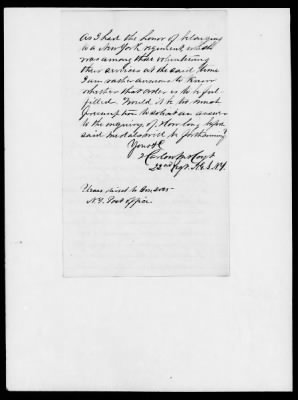 As I had the honor of belonging
to a New York regiment which
was among those volunteering
their services at the said time
I am rather anxious to know
whether that order is to be ful
filled. Would it be too much
presumption to solicit an answer
to the enquiry of How long before
said medals will be forthcoming
Yours &c
22nd Regt. N.G.S.N.Y.
Please direct to
N.Y. Post Office.